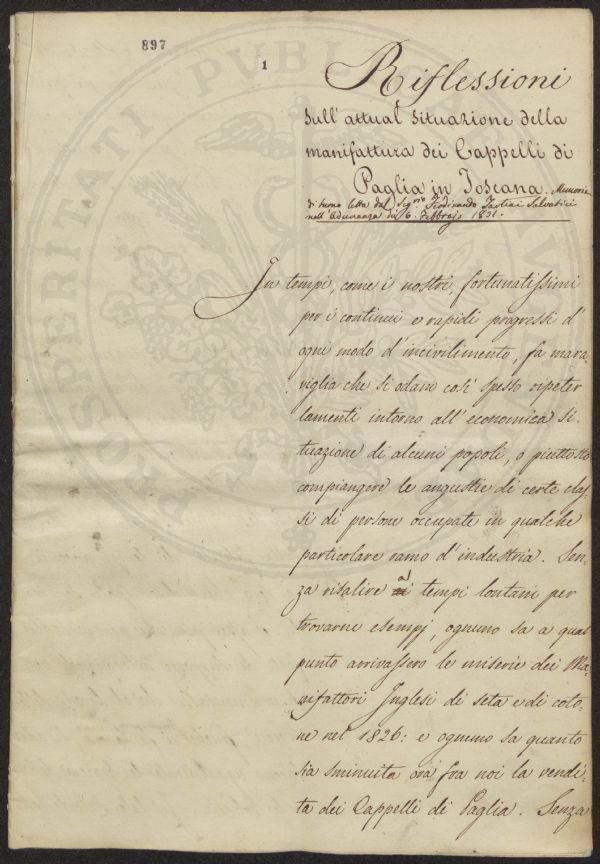 897
1
Riflessioni
sull'attual situazione della
manifattura dei Cappelli di
Paglia in Toscana. Memoria
di turno letta dal Sig.re Ferdinando Tartini Salvatici
nell'Adunanza dei 6. Febbrajo 1831.
In tempi, come i nostri, fortunatissimi
per i continui e rapidi progressi d'
ogni modo d'incivilimento, fa mara-
viglia che si odano così spesso ripeter
lamenti intorno all'economica si-
tuazione di alcuni popoli, o piuttosto
compiangere le angustie di certe clas-
si di persone occupate in qualche
particolare ramo d'industria. Sen-
za risalire a tempi lontani per
trovarne esempj, ognuno sa a qual
punto arrivassero le miserie dei Ma-
nifattori Inglesi di seta e di coto-
ne nel 1826: e ognuno sa quanto
sia sminuita ora fra noi la vendi-
ta dei Cappelli di Paglia. Senza
PROSPERITATI PVBLICAE